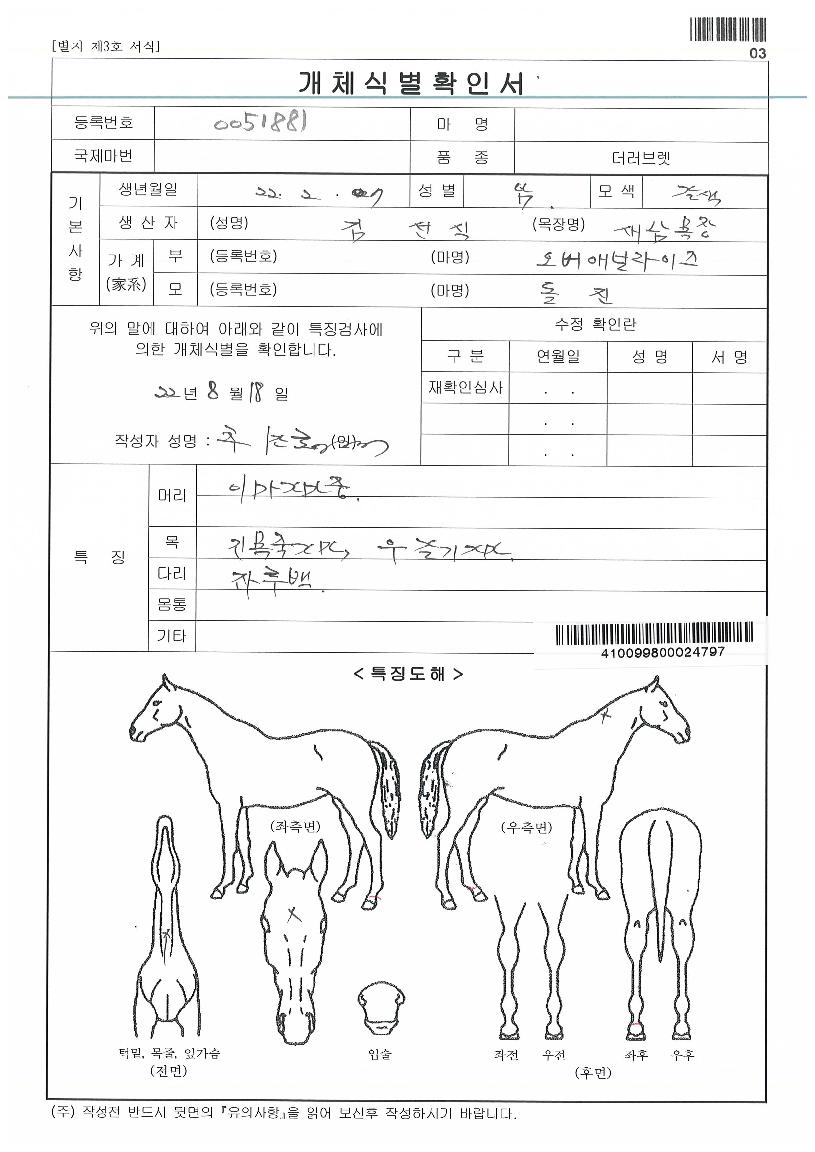 [별지 제3호 서식]
03
개체식별확인서
등록번호 0051881 마 명
국제마번 품 종 더러브렛
기본사항
생년월일 22. 2. 성 별 모 색 갈색
생 산 자 (성명) 김 전 식 (목장명) 재삼목장
가 계 (家系) 부 (등록번호) (마명) 오버애널라이즈
모 (등록번호) (마명) 돌 진
위의 말에 대하여 아래와 같이 특징검사에
의한 개체식별을 확인합니다.
22년 8월 18일
작성자 성명 : (인)
수정 확인란
구 분 연월일 성 명 서 명
재확인심사 . .
. .
. .
특 징
머리 이마자모중.
목 진목죽자모, 우 줄기자모.
다리 좌후백.
몸통
기타
410099800024797
< 특징도해 >
(좌측면) (우측면)
턱밑, 목줄, 앞가슴
(전면)
입술
좌전 우전 좌후 우후
(후면)
(주) 작성전 반드시 뒷면의 『유의사항』을 읽어 보신후 작성하시기 바랍니다.